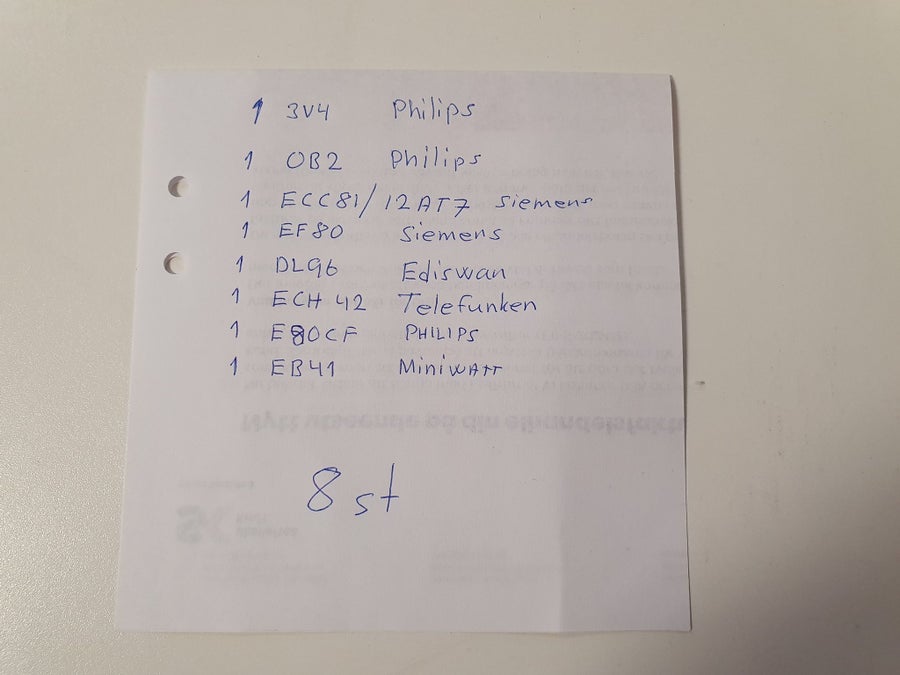 1 3V4 Philips
1 OB2 Philips
1 ECC81/12AT7 Siemens
1 EF80 Siemens
1 DL96 Ediswan
1 ECH 42 Telefunken
1 E80CF PHILIPS
1 EB41 Miniwatt
8 st